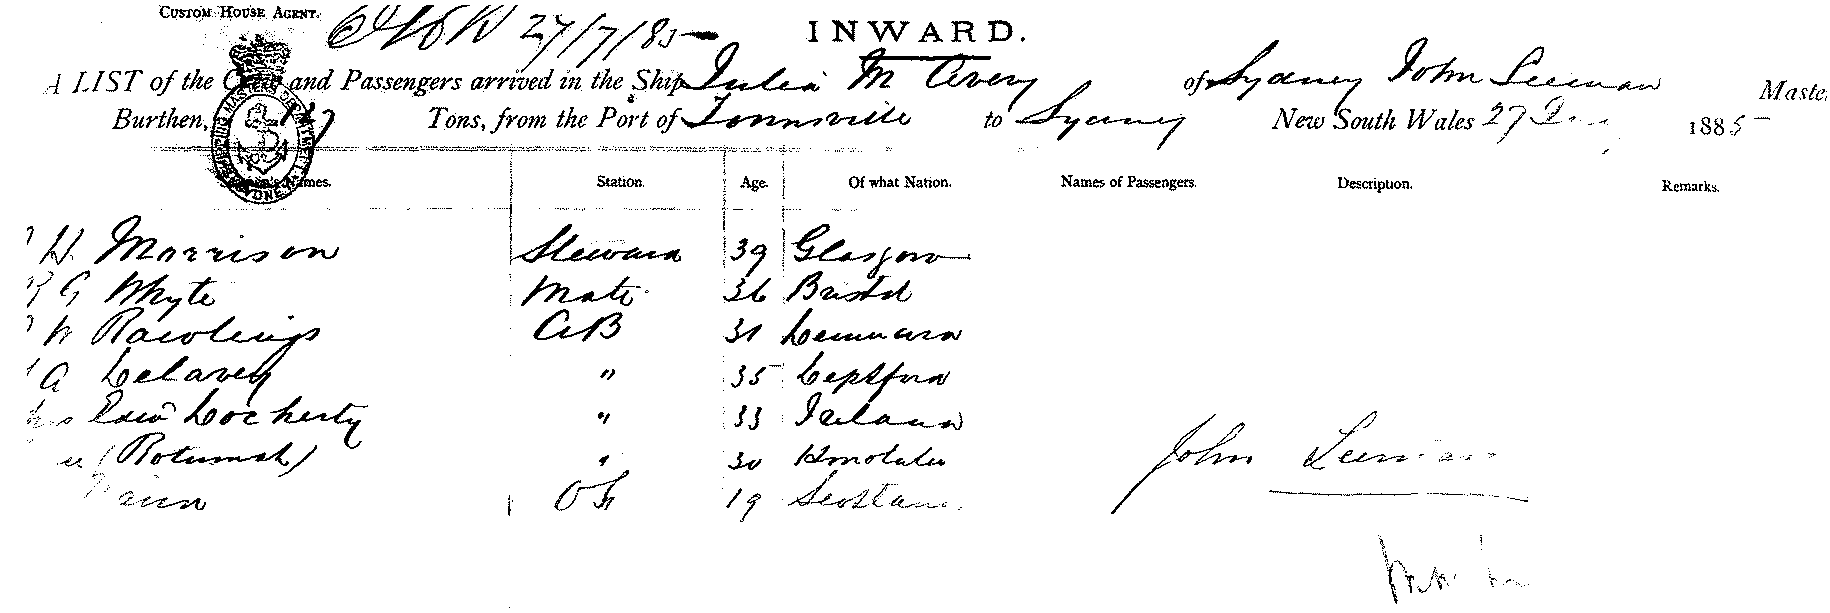 CUSTOM HOUSE AGENT.
27/7/85
INWARD.
A LIST of the Crew and Passengers arrived in the Ship Julia M Avery of Sydney John Leeman Master
Burthen, Tons, from the Port of Townsville to Sydney New South Wales 27 1885
Names. Station. Age. Of what Nation. Names of Passengers. Description. Remarks.
H Morrison Steward 39 Glasgow
G Whyte Mate 36 Bristol
W Rawlings AB 31 Denmark
A Delavey " 35 Deptford
Edwd Docherty " 33 Ireland
(Rotumah) " 30 Honolulu
OS 19 Scotland
John Leeman